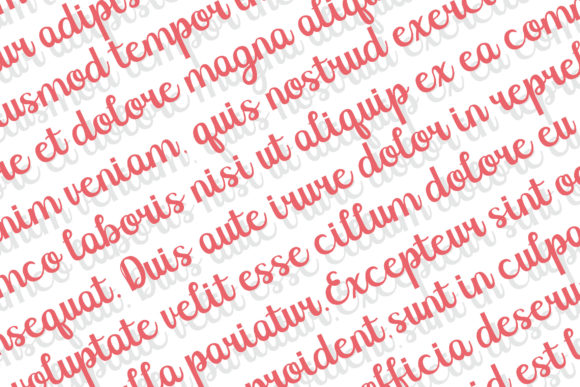 ur adipis
eiusmod tempor in
re et dolore magna aliqua
enim veniam, quis nostrud exerci
mco laboris nisi ut aliquip ex ea comm
nsequat. Duis aute irure dolor in repreh
voluptate velit esse cillum dolore eu
lla pariatur. Excepteur sint oc
proident, sunt in culpa
officia deseru
id est l